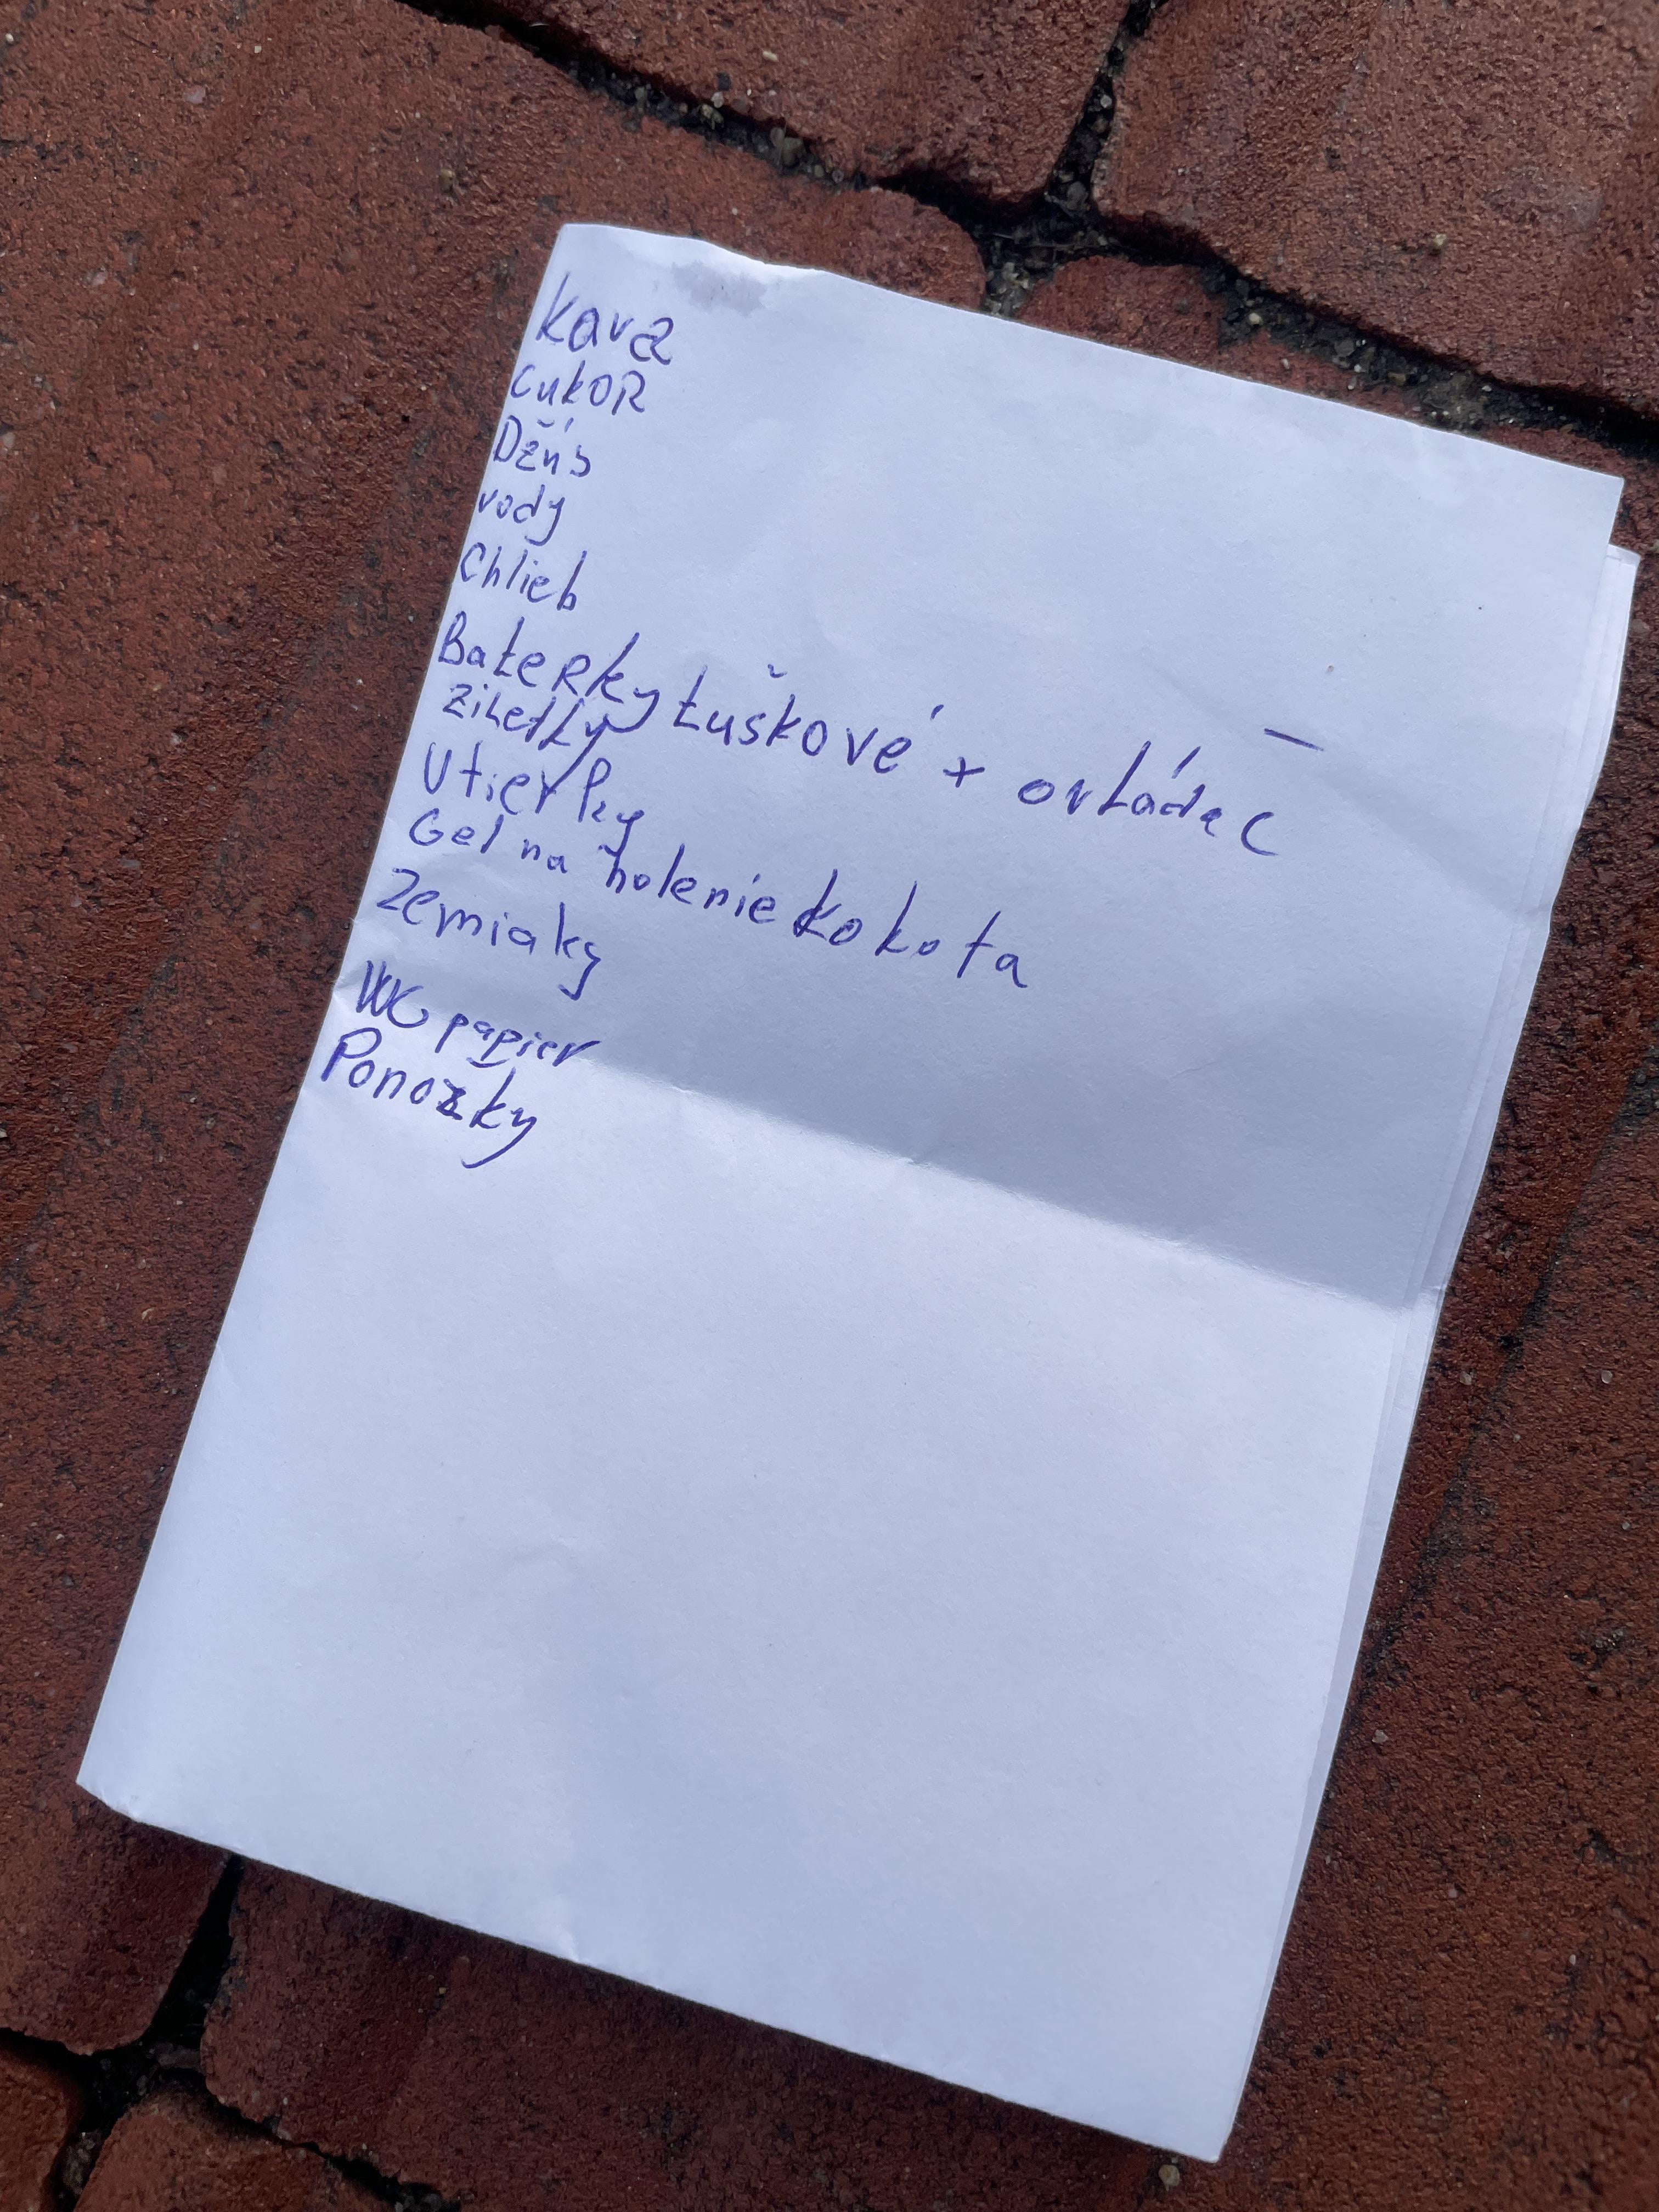 Kava
cukOR
Džús
vody
Chlieb
BateRky tuškové + ovládač
ziletky
Utierky
Gel na holenie kokota
Zemiaky
WC papier
Ponozky